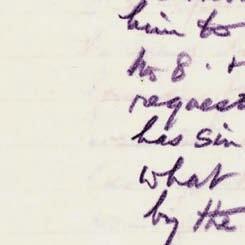 him to
No 8. +
request
has sin
what
by the